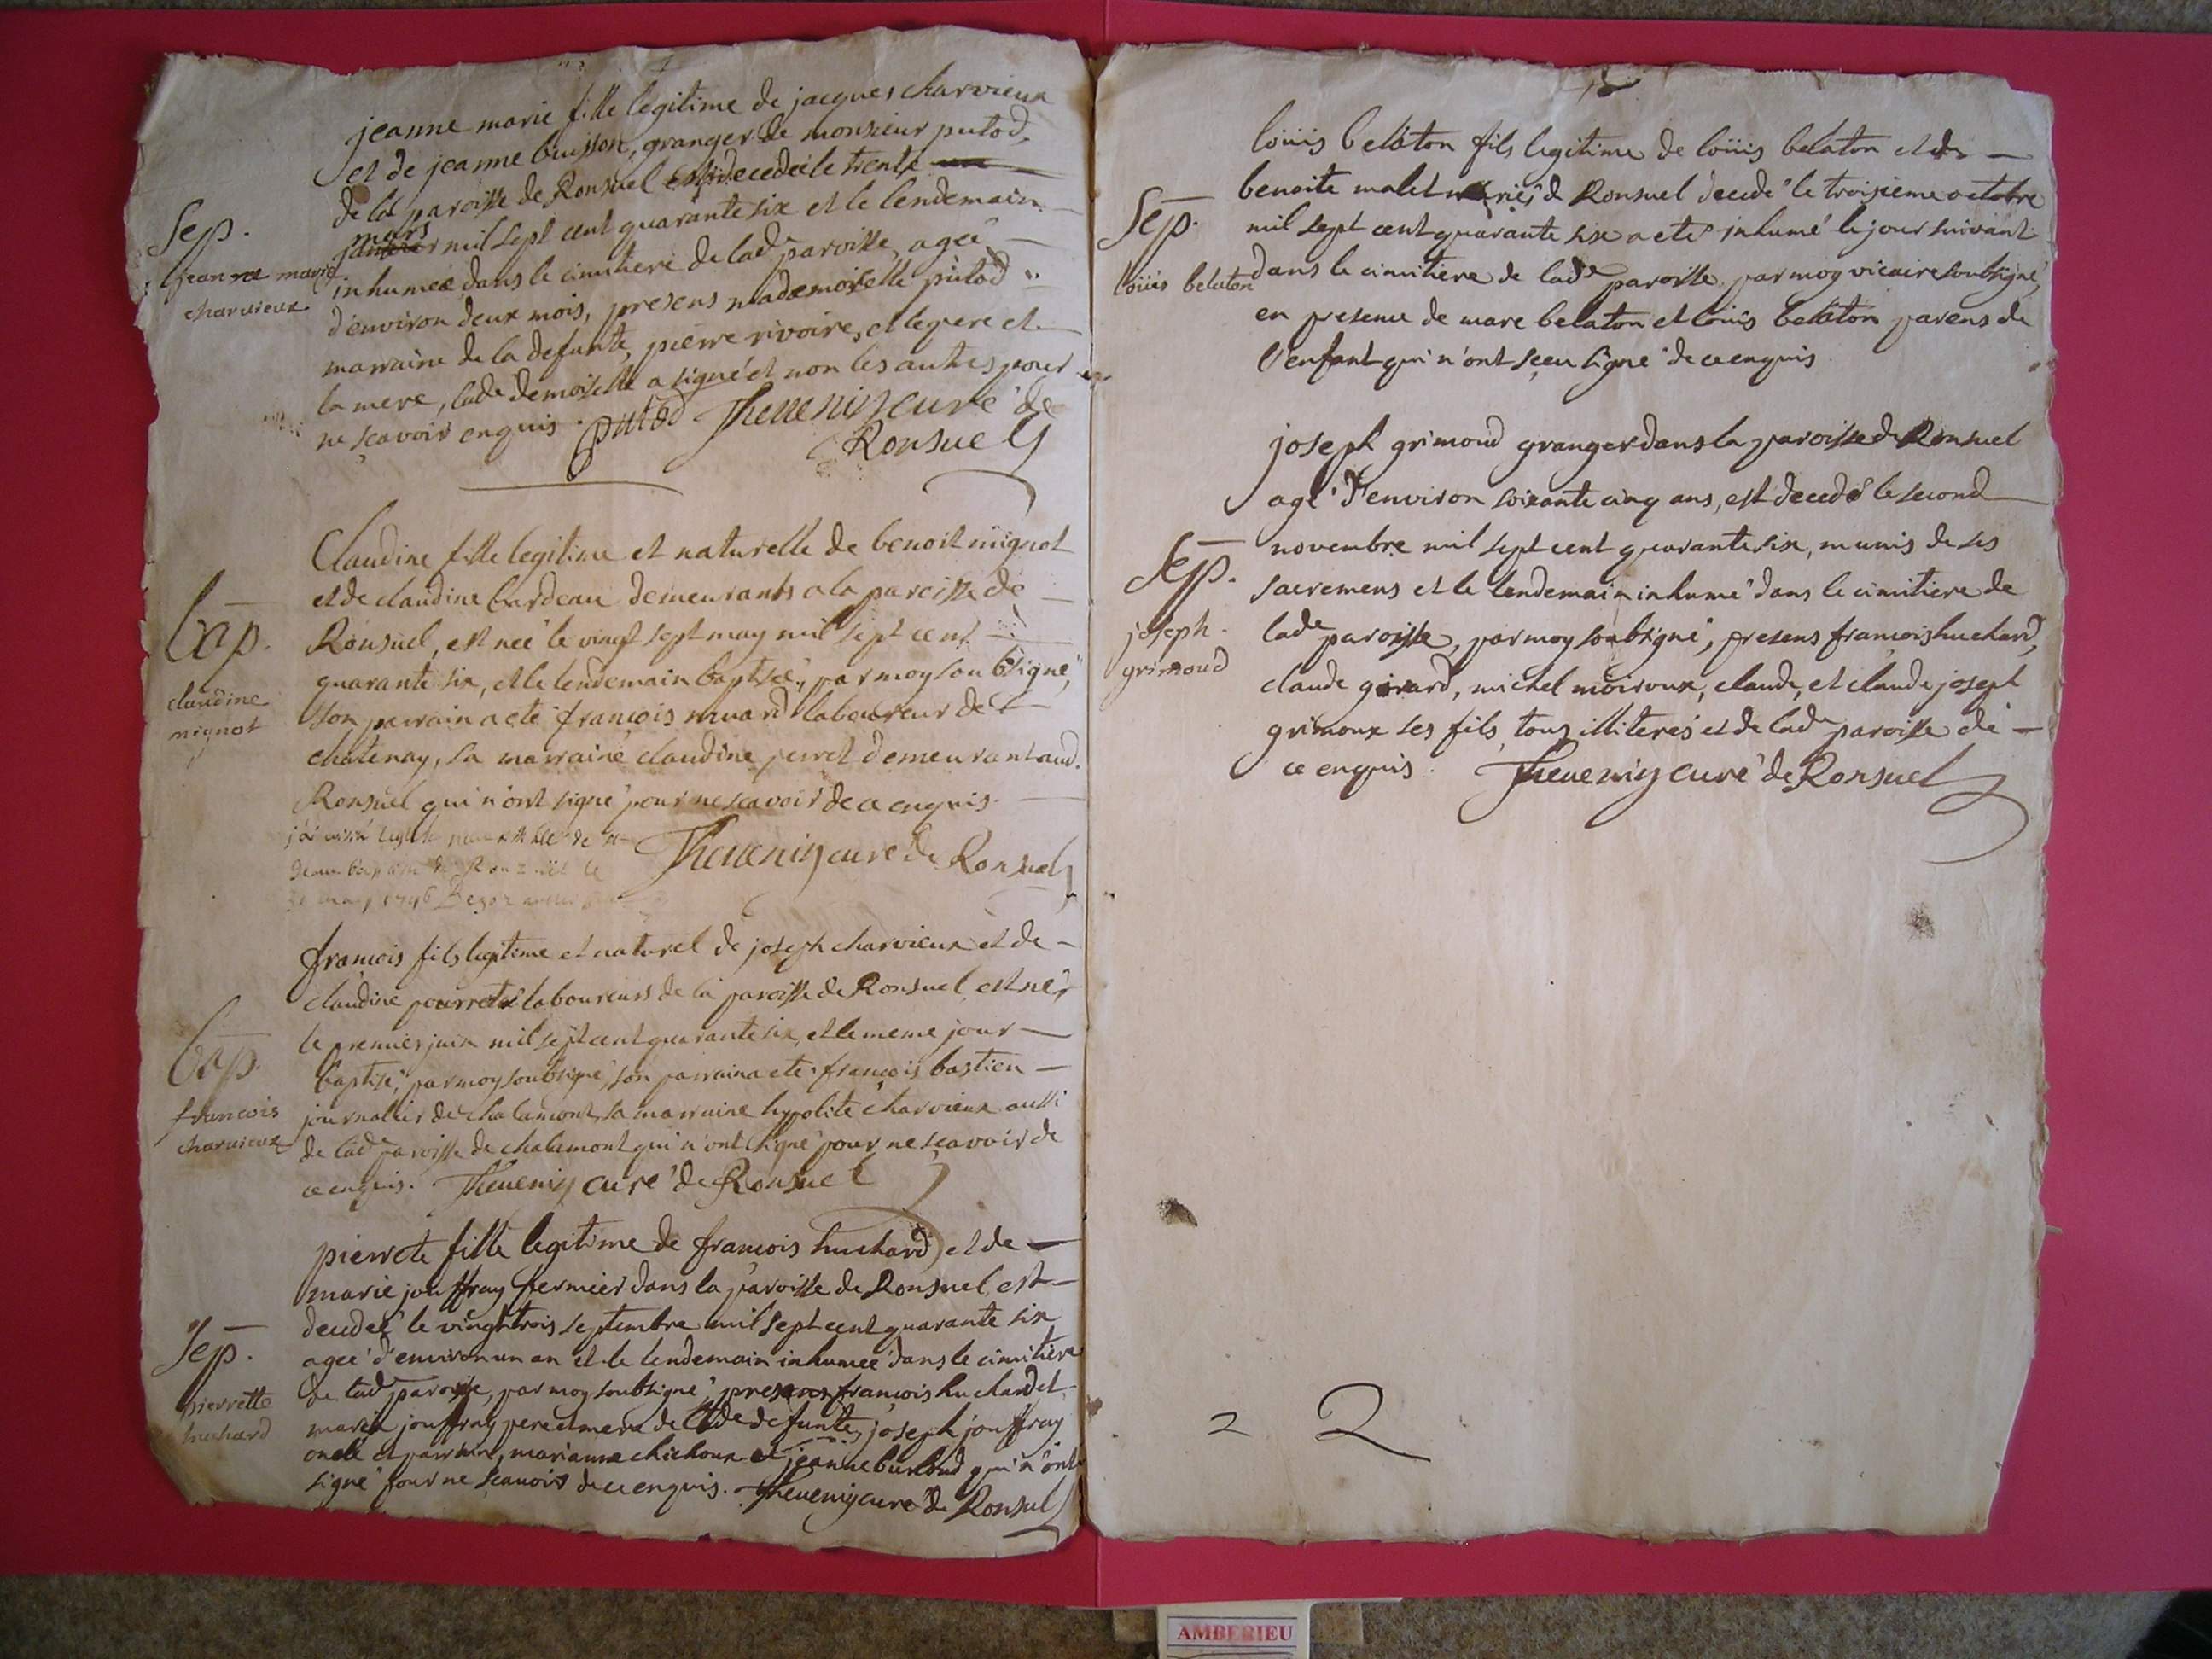 jeanne marie fille legitime de jacques charvieux
et de jeanne buisson, granger de monsieur putod,
de la paroisse de Ronsuel est decedeé le trente
mars
mil sept cent quarante six et le lendemain
inhumeé dans le cimitiere de lade paroisse, ageé
d'environ deux mois, presens mademoiselle putod
marraine de la defunte, pierre rivoire, et le pere et
la mere, lade demoiselle a signé et non les autres pour
ne sçavoir enquis. putod Thevenin curé de
Ronsuel
Sep.
jeanne marie
charvieux
Claudine fille legitime et naturelle de benoit mignot
et de claudine bardeau demeurants a la paroisse de
Ronsuel, est neé le vingt sept may mil sept cent
quarante six, et le lendemain baptiseé, par moy soubsigné,
son parrain a eté francois laboureur de
chatenay, sa marraine claudine perret demeurant aud.
Ronsuel qui n'ont signé pour ne scavoir de ce enquis.
Thevenin curé de Ronsuel
Bap.
claudine
mignot
francois fils legitime et naturel de joseph charvieux et de
claudine pourret laboureurs de la paroisse de Ronsuel est né
le premier juin mil sept cent quarante six, et le meme jour
baptisé, par moy soubsigné, son parrain a eté francois bastien
journalier de chalamont, sa marraine hypolite charvieux aussi
de lade paroisse de chalamont qui n'ont signé pour ne scavoir de
ce enquis. Thevenin curé de Ronsuel
bap.
francois
charvieux
pierrete fille legitime de francois huchard et de
marie jouffray fermier dans la paroisse de Ronsuel est
decedeé le vingt trois septembre mil sept cent quarante six
ageé d'environ un an et le lendemain inhumeé dans le cimitiere
de lad paroisse, par moy soubsigné, presens francois huchard et
marie jouffray pere et mere de lade defunte, joseph jouffray
oncle et parrain, marianne chichoux et jeanne qui n'ont
signé pour ne scauoir de ce enquis. Thevenin curé de Ronsuel
Sep.
pierrette
huchard
loüis belaton fils legitime de loüis belaton et de
benoite malet mariés de Ronsuel decedé le troisieme octobre
mil sept cent quarante six a eté inhumé le jour suivant
dans le cimitiere de lade paroisse, par moy vicaire soubsigné,
en presence de marc belaton et loüis belaton parens de
l'enfant qui n'ont sceu signé de ce enquis
Sep.
loüis belaton
joseph grimond granger dans la paroisse de Ronsuel
agé d'environ soixante cinq ans, est decedé le second
novembre mil sept cent quarante six, munis de ses
sacremens et le lendemain inhumé dans le cimitiere de
lade paroisse, par moy soubsigné, presens francois huchard,
claude girard, michel moiroux, claude, et claude joseph
grimoux ses fils, tous illiterés et de lade paroisse de
ce enquis. Thevenin curé de Ronsuel
Sep.
joseph
grimond
2 2
AMBERIEU